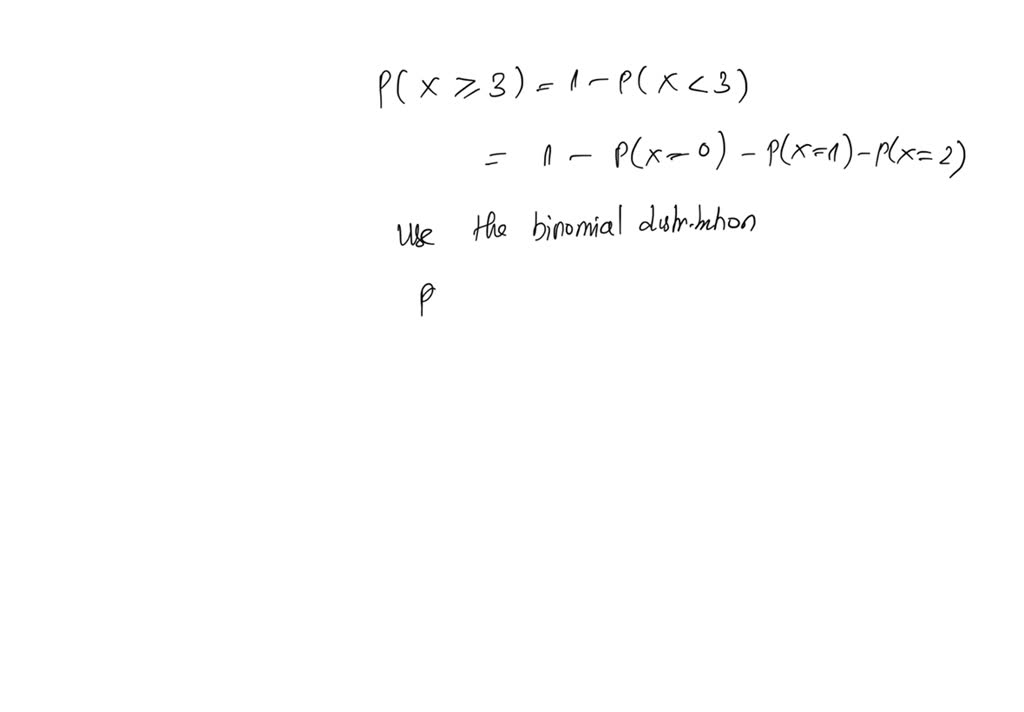 P( x ⩾ 3) = 1 - P( x < 3)
= 1 - P(x = 0) - P(x=1) - P(x= 2)
use the binomial distribution
P